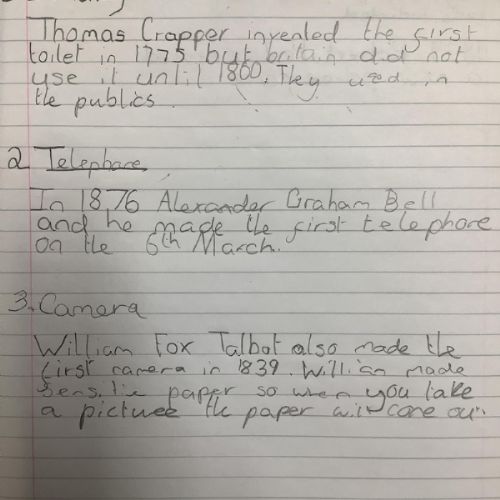 Thomas Crapper invented the first
toilet in 1775 but britain did not
use it until 1860. They used in
the publics.
2 Telephone
In 1876 Alexander Graham Bell
and he made the first telephone
on the 6th March.
3. Camera
William Fox Talbot also made the
first camera in 1839. William made
sensitie paper so when you take
a picture the paper will come out.